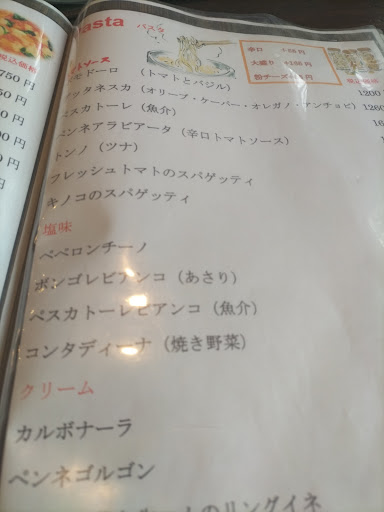 pasta パスタ
税込価格
辛口 円
大盛り 円
粉チーズ 円
トソース
モドーロ （トマトとバジル）
ッタネスカ（オリーブ・ケーパー・オレガノ・アンチョビ） 1200
ペスカトーレ（魚介） 1260
ペンネアラビアータ（辛口トマトソース）
トンノ（ツナ）
フレッシュトマトのスパゲッティ
キノコのスパゲッティ
塩味
ペペロンチーノ
ボンゴレビアンコ（あさり）
ペスカトーレビアンコ（魚介）
コンタディーナ（焼き野菜）
クリーム
カルボナーラ
ペンネゴルゴン
のリングイネ
750 円
円
円
円
円